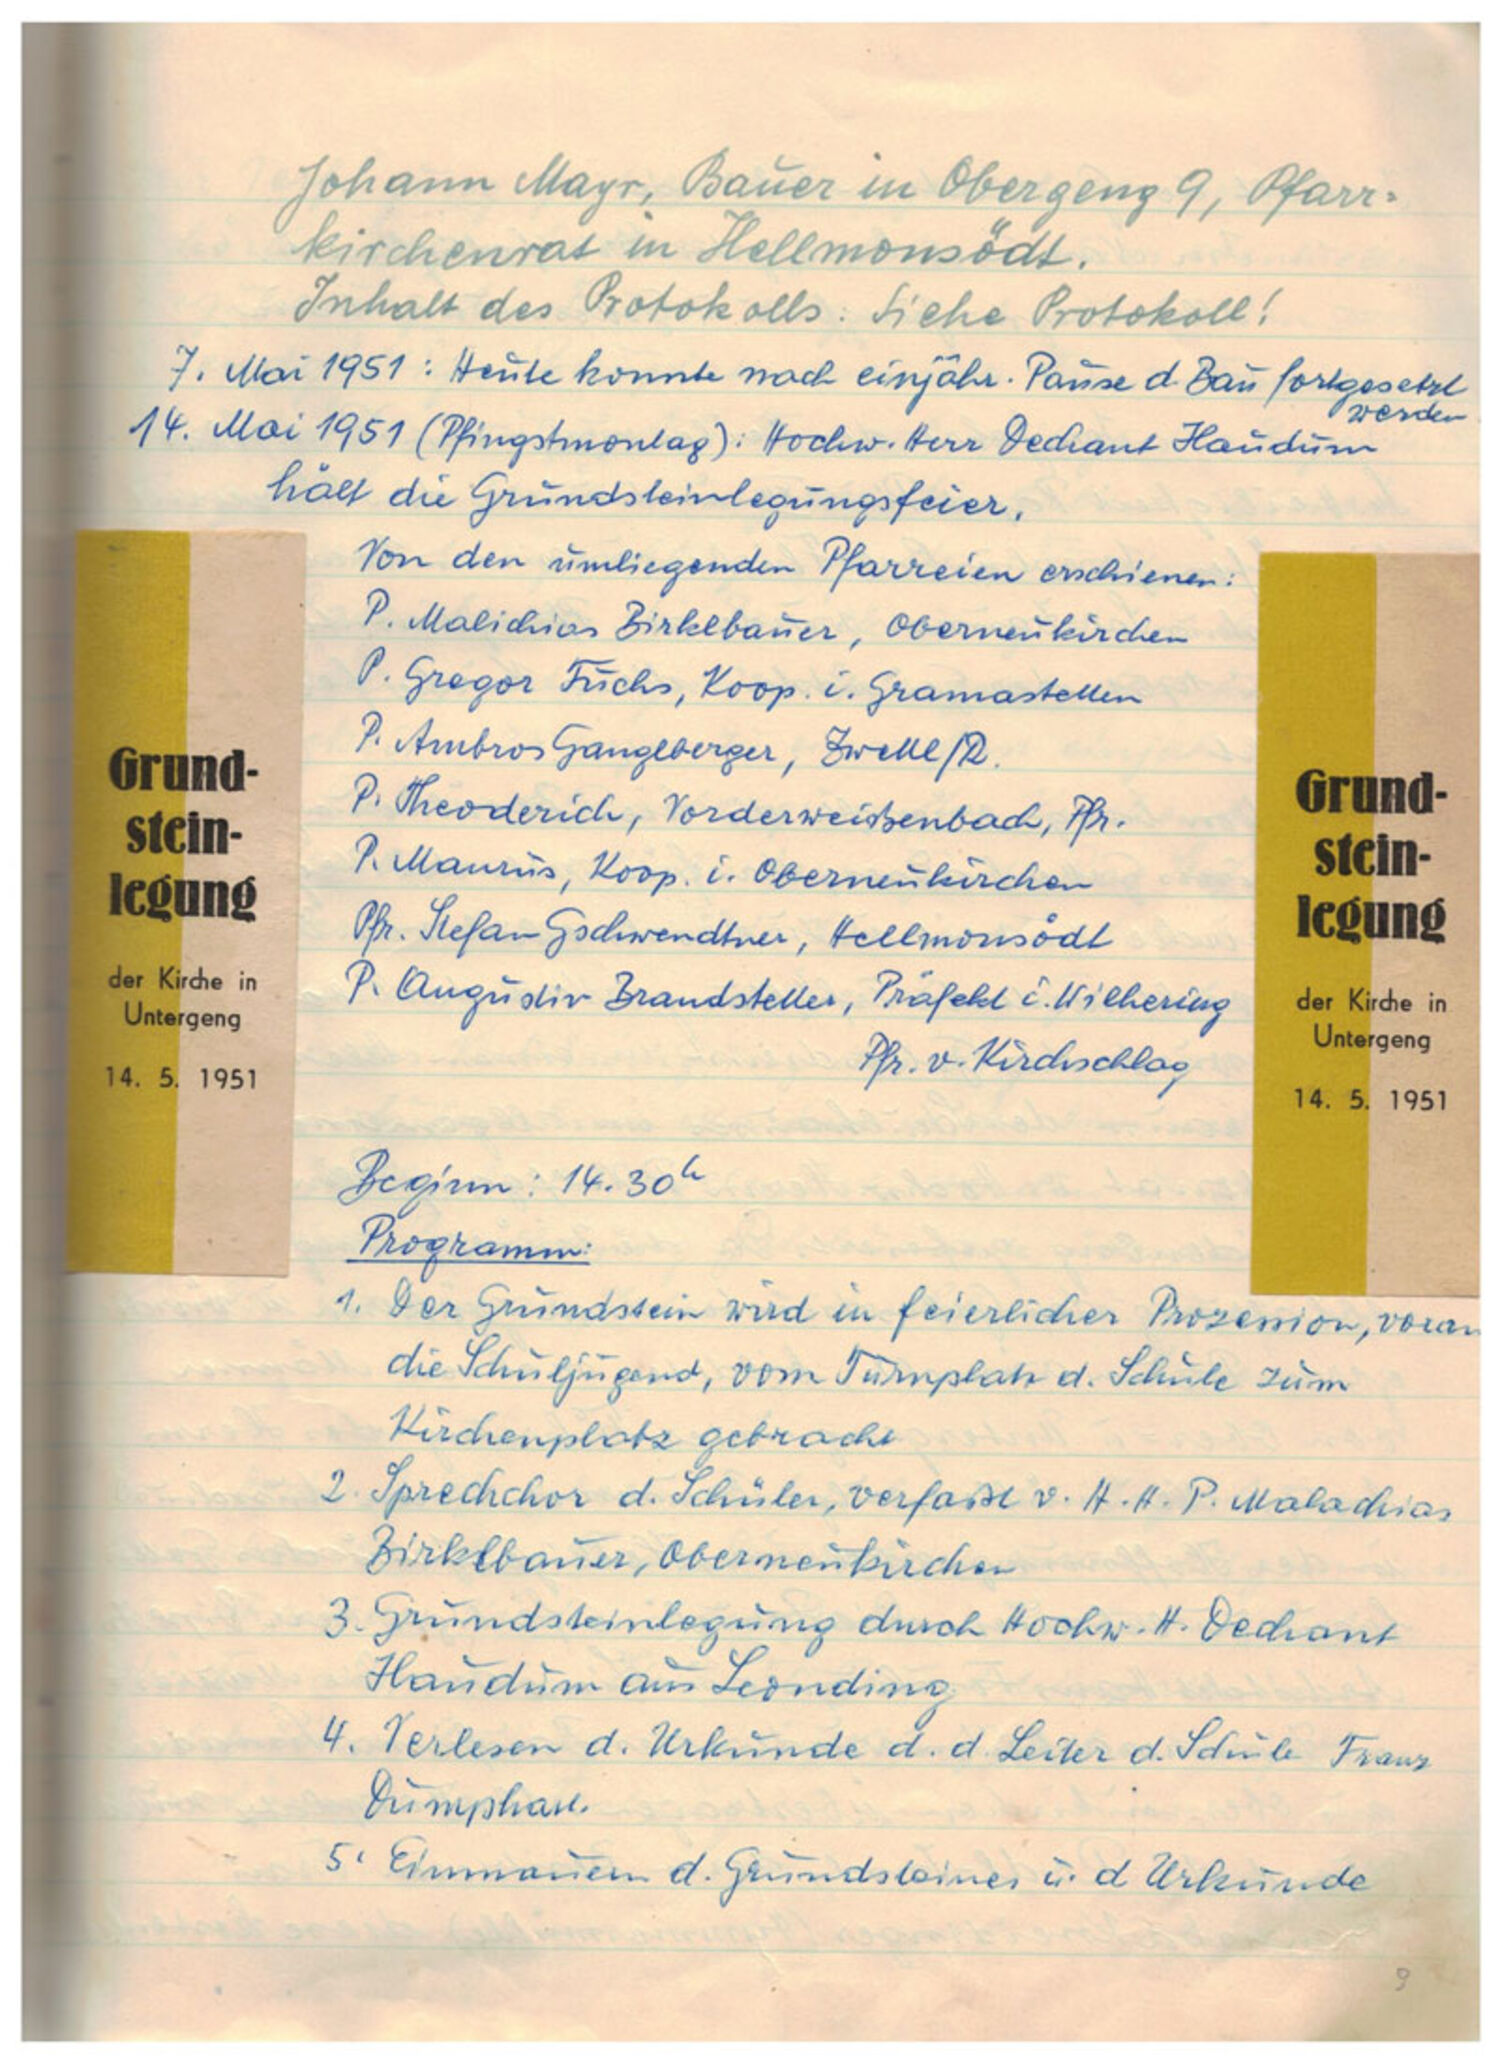 Johann Mayr, Bauer in Obergeng 9, Pfarr-
kirchenrat in Hellmonsödt.
Inhalt des Protokolls: Siehe Protokoll!
7. Mai 1951: Heute konnte nach einjähr. Pause d. Bau fortgesetzt
werden
14. Mai 1951 (Pfingstmontag): Hochw. Herr Dechant Haudum
hält die Grundsteinlegungsfeier.
Von den umliegenden Pfarreien erschienen:
P. Malichias Birklbauer, Oberneukirchen
P. Gregor Fuchs, Koop. i. Gramastetten
P. Ambros Ganglberger, Zwettl/R.
P. Theoderich, Vorderweißenbach, Pfr.
P. Maurus, Koop. i. Oberneukirchen
Pfr. Stefan Gschwendtner, Hellmonsödt
P. Augustin Brandstetter, Präfekt i. Wilhering
Pfr. v. Kirchschlag
Grund-
stein-
legung
der Kirche in
Untergeng
14. 5. 1951
Grund-
stein-
legung
der Kirche in
Untergeng
14. 5. 1951
Beginn: 14.30h
Programm:
1. Der Grundstein wird in feierlicher Prozession, voran
die Schuljugend, vom Turnplatz d. Schule zum
Kirchenplatz gebracht
2. Sprechchor d. Schüler, verfaßt v. H. H. P. Malachias
Birklbauer, Oberneukirchen
3. Grundsteinlegung durch Hochw. H. Dechant
Haudum aus Leonding
4. Verlesen d. Urkunde d. d. Leiter d. Schule Franz
Dumphart.
5. Einmauern d. Grundsteines u. d Urkunde
9